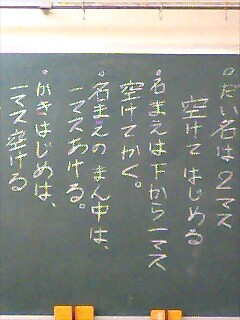 ・だい名は2マス
空けてはじめる
・名まえは下から一マス
空けてかく。
・名まえのまん中は、
一マスあける。
・かきはじめは、
一マス空ける